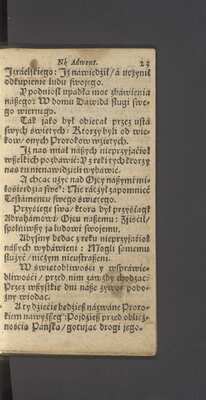 Ná Adwent. 23
Izráelskiego: Jż náwiedził/ á vczynił
odkupienie ludu swojego.
Y podniosł vpadłá moc zbáwienia
nášego: W domu Dáwidá sługi swe-
go wiernego.
Ták jáko był obiecał przez vstá
swych świętych: Ktorzy byli od wie-
kow/ onych Prorokow wziętych.
Jż nas miał nášych nieprzyjacioł
wšelkich pozbáwić: Y z ręki tych ktorzy
nas tu nienawidzieli wybáwić.
A chcąc vżyć nád Ojcy nášymi mi-
łosierdzia swe°: Nie raczył zápomnieć
Testámentu swego świętego.
Przysięgę swą/ ktorą był przysiągł
Abráhámowi/ Ojcu nášemu: Ziścił/
spełniwšy ją ludowi swojemu.
Abysmy będąc z ręku nieprzyjacioł
nášych wybáwieni: Mogli jemu
służyć/ niczym nieustrášeni.
W świętobliwości y w spráwie-
dliwości/ przed nim záwżdy chodząc:
Przez wšystkie dni náše żywot pobo-
żny wiodąc.
A ty dziecię będzieš názwáne Proro-
kiem nawyżšeg°: Pojdzieš przed oblicz-
nością Páńską/ gotując drogi jego.